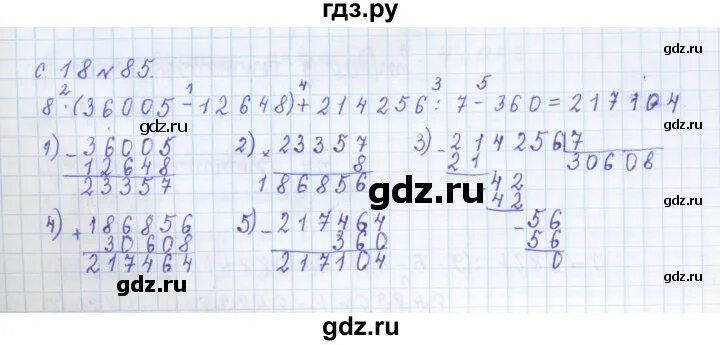 гдз.ру
с. 18 № 85.
2 1 4 3 5
8 · (36005 − 12648) + 214256 : 7 − 360 = 217104
gdz.ru gdz.ru
1) − 36005 2) × 23357 3) − 214256 | 7
12648 8 21 30608
23357 186856 42
gdz.ru
42
4) + 186856 5) − 217464 − 56
30608 360 56
217464 217104 0
gdz.ru gdz.ru
gdz.ru